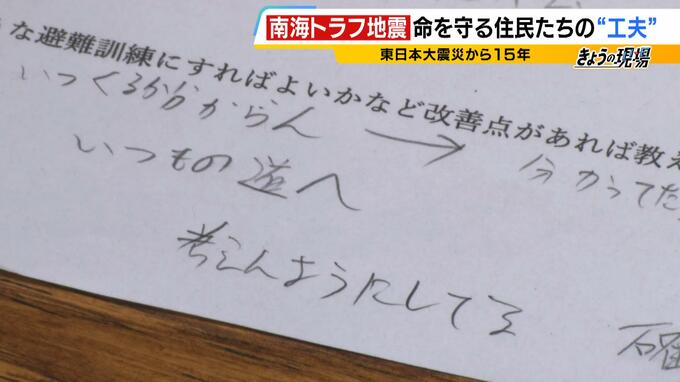 南海トラフ地震 命を守る住民たちの“工夫”
東日本大震災から15年
きょうの現場
な避難訓練にすればよいかなど改善点があれば教え
いつくるか分からん → 分かってた
いつもの道へ
考えんようにしてる
確